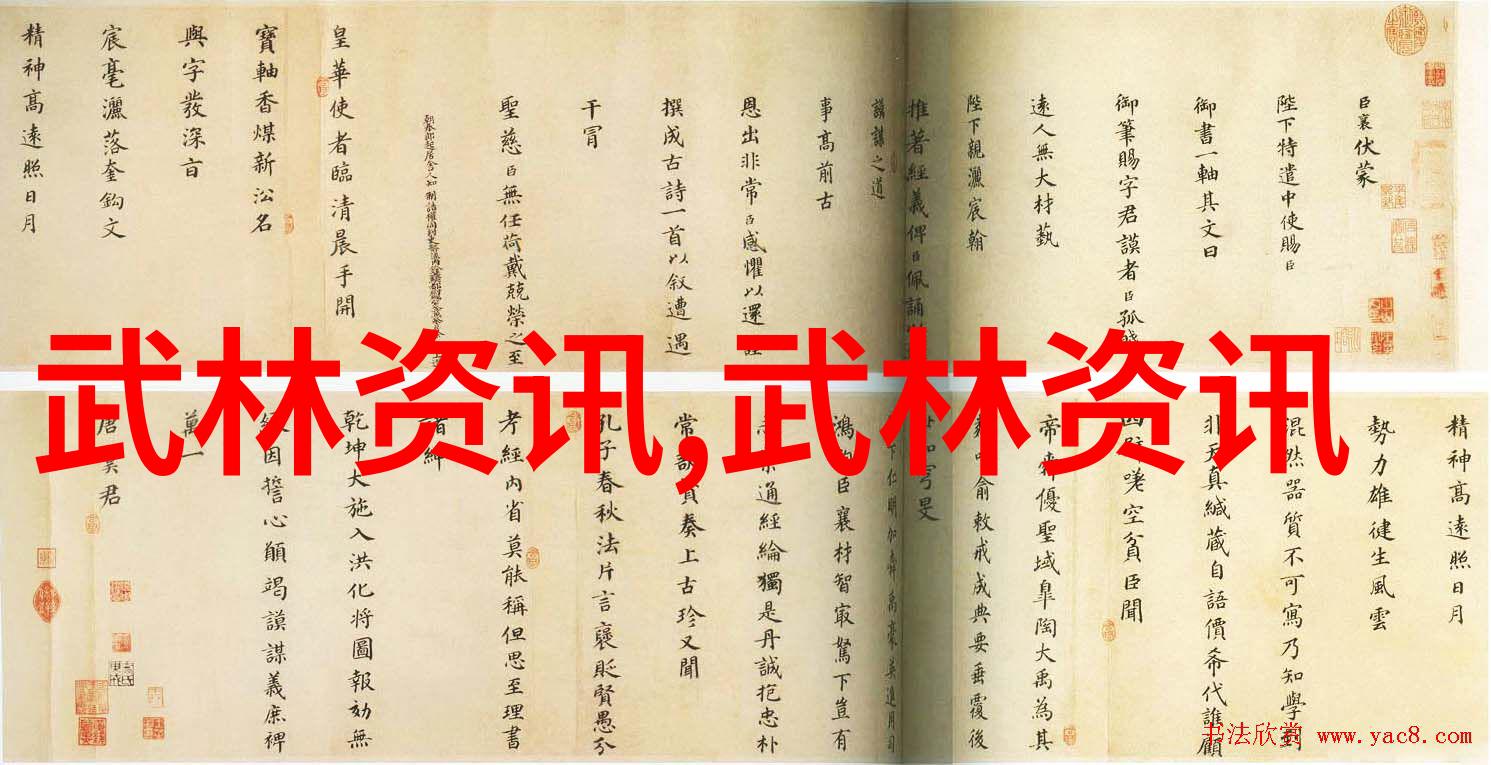 臣襄伏蒙
陛下特遣中使賜臣
御書一軸其文曰
御筆賜字君謨者臣孤賤
遠人無大材藝
陛下親灑宸翰
推著經義俾臣佩誦
謨謀之道
事高前古
恩出非常臣感懼以還
撰成古詩一首以叙遭遇
干冒
聖慈臣無任荷戴兢榮之至
皇華使者臨清晨手開
寶軸香煤新沁名
與字發深旨
宸毫灑落奎鈎文
精神高遠照日月
武林资讯,武林资讯
精神高遠照日月
勢力雄健生風雲
混然器質不可寫乃知學到
非天真緘藏自語價希代誰顧
四壁嗟空貧臣聞
帝舜優聖域皋陶大禹為其
吁俞敕戒成典要垂覆後
世如穹旻
下仁明加舜禹豪英進用司
鴻鈞臣襄材智最駑下豈有
通經綸獨是丹誠抱忠朴
常欲贊奏上古珍又聞
孔子春秋法片言褒貶賢愚分
考經內省莫能稱但思至理書
諸紳
乾坤大施入洪化將圖報効無
緣因誓心願竭謨謀義庶裨
萬一
唐虞君
书法欣赏 www.yac8.com